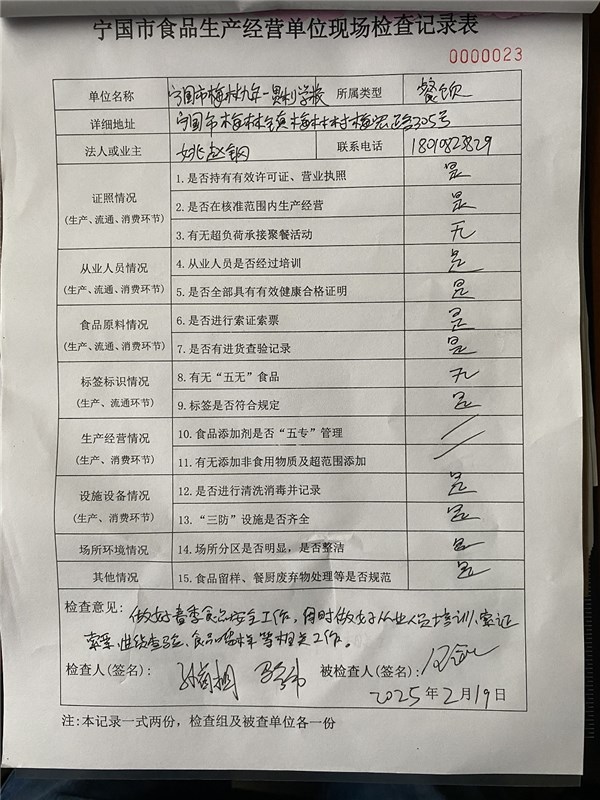 宁国市食品生产经营单位现场检查记录表
0000023
单位名称 宁国市梅林九年一贯制学校 所属类型 餐饮
详细地址 宁国市梅林镇梅林村梅宏路305号
法人或业主 姚赵钢 联系电话 18010823829
证照情况
(生产、流通、消费环节)
1.是否持有有效许可证、营业执照 是
2.是否在核准范围内生产经营 是
3.有无超负荷承接聚餐活动 无
从业人员情况
(生产、流通、消费环节)
4.从业人员是否经过培训 是
5.是否全部具有有效健康合格证明 是
食品原料情况
(生产、流通、消费环节)
6.是否进行索证索票 是
7.是否有进货查验记录 是
标签标识情况
(生产、流通环节)
8.有无“五无”食品 无
9.标签是否符合规定 是
生产经营情况
(生产、消费环节)
10.食品添加剂是否“五专”管理 /
11.有无添加非食用物质及超范围添加 /
设施设备情况
(生产、消费环节)
12.是否进行清洗消毒并记录 是
13.“三防”设施是否齐全 是
场所环境情况 14.场所分区是否明显,是否整洁 是
其他情况 15.食品留样、餐厨废弃物处理等是否规范 是
检查意见: 做好春季食品安全工作,同时做好从业人员培训、索证
索票、进货查验、食品留样等相关工作。
检查人(签名): 被检查人(签名):
2025年2月19日
注:本记录一式两份,检查组及被查单位各一份